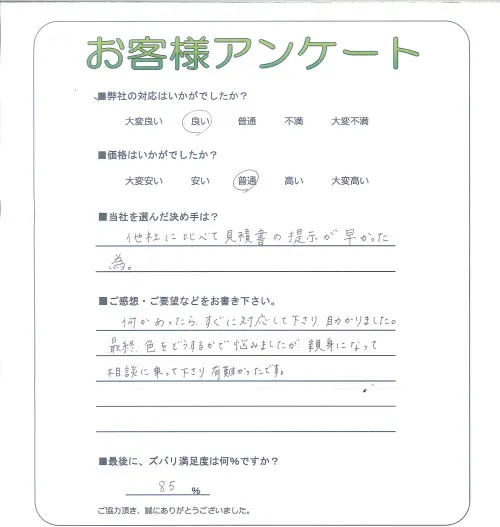 お客様アンケート
■弊社の対応はいかがでしたか？
大変良い 良い 普通 不満 大変不満
■価格はいかがでしたか？
大変安い 安い 普通 高い 大変高い
■当社を選んだ決め手は？
他社に比べて見積書の提示が早かった
為。
■ご感想・ご要望などをお書き下さい。
何かあったら、すぐに対応して下さり助かりました。
最終、色をどうするかで悩みましたが親身になって
相談に乗って下さり有難かったです。
■最後に、ズバリ満足度は何％ですか？
85 %
ご協力頂き、誠にありがとうございました。